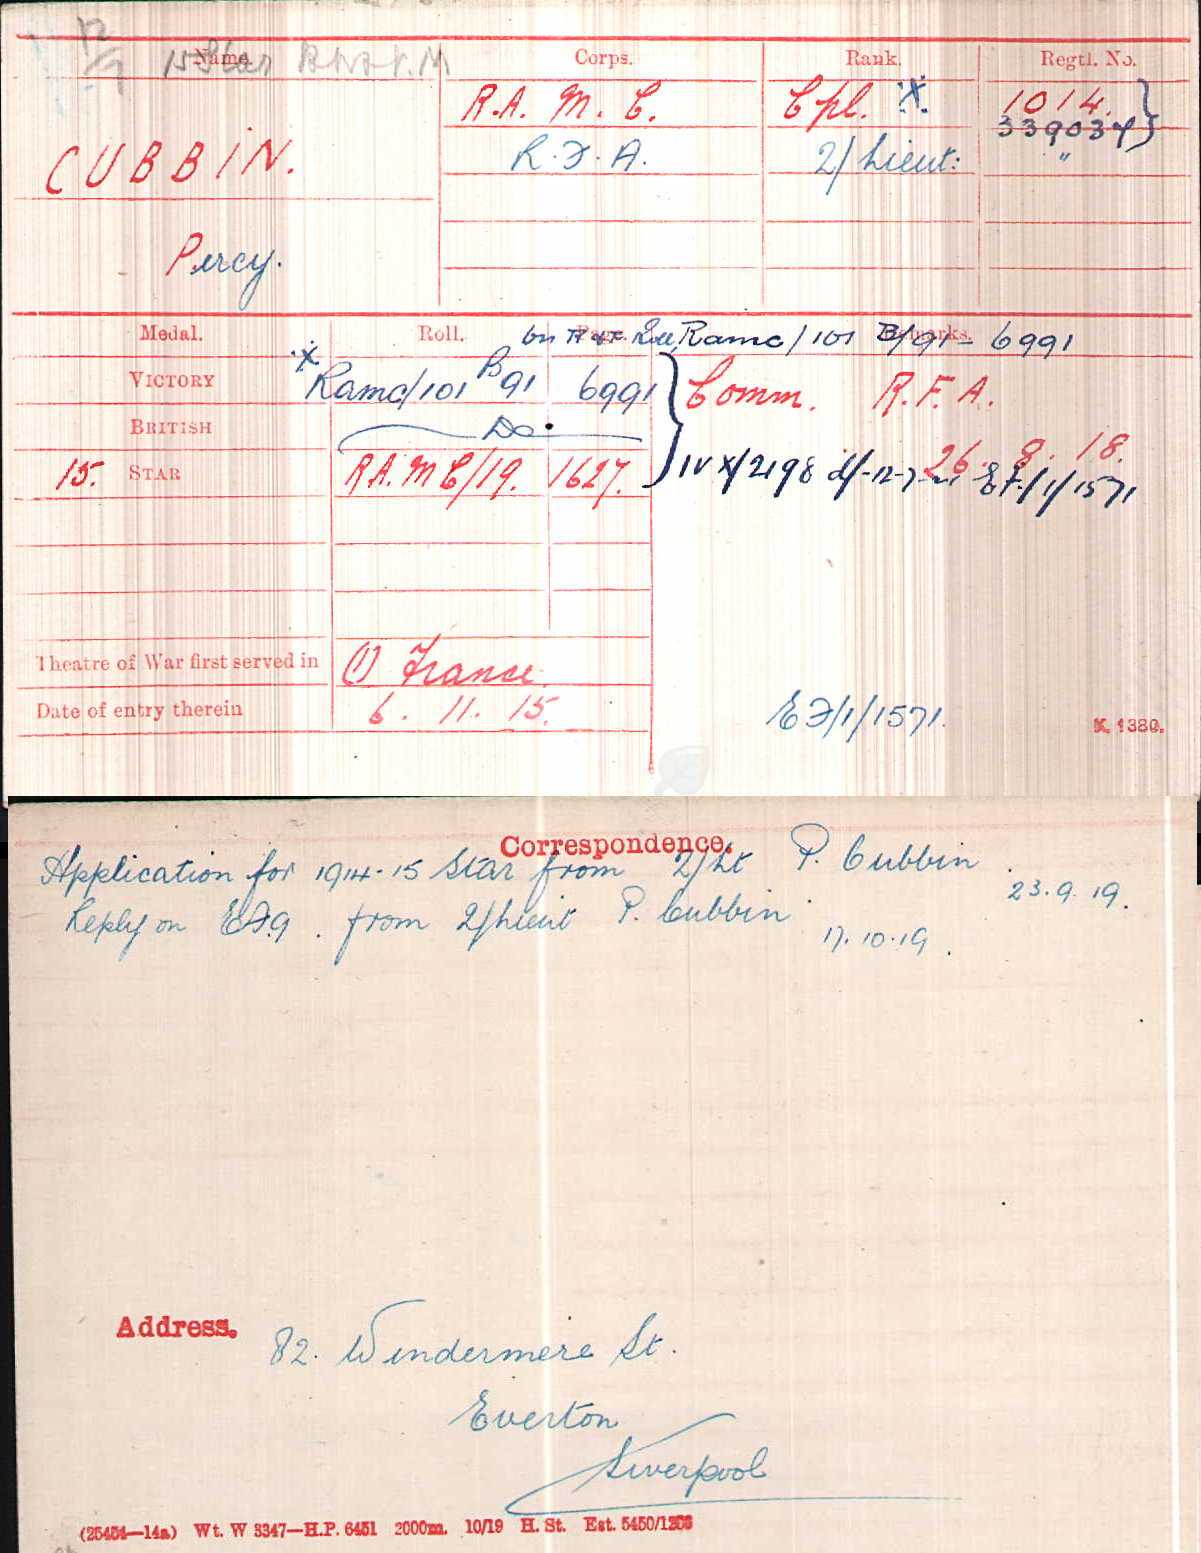 12/7 15 Star B.W. & V.M
Name. Corps. Rank. Regtl. No.
R.A. M. C. Cpl. X. 1014. }
339034 }
CUBBIN. R.F.A. 2/Lieut: "
Percy.
Medal. Roll. on Page. Remarks.
Ramc/101 B/91 - 6991
X
VICTORY Ramc/101 B91 6991 } Comm. R.F.A.
BRITISH Do
26. 8. 18.
15. STAR R.A.M.C/19. 1627. IV X/2198 d/-12-7-21 EF/1/1571
Theatre of War first served in (1) France.
Date of entry therein 6. 11. 15.
EF/1/1571.
K. 1380.
Correspondence.
Application for 1914-15 Star from 2/Lt P. Cubbin. 23.9.19.
Reply on EF9. from 2/Lieut P. Cubbin. 17.10.19.
Address. 82. Windermere St.
Everton
Liverpool
(25454—14a) Wt. W 3347—H.P. 6451 2000m. 10/19 H. St. Est. 5450/1203